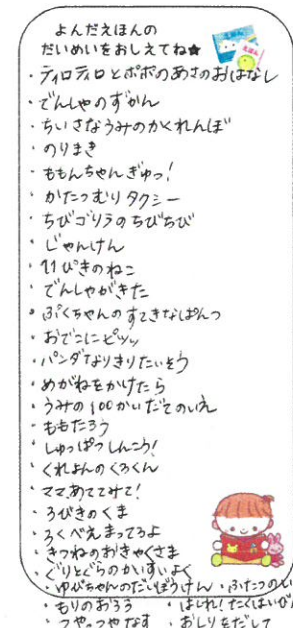 よんだえほんの
だいめいをおしえてね★
えほん
・ティロティロとポポのあさのおはなし
・でんしゃのずかん
・ちいさなうみのかくれんぼ
・のりまき
・ももんちゃんぎゅっ!
・かたつむりタクシー
・ちびゴリラのちびちび
・じゃんけん
・11ぴきのねこ
・でんしゃがきた
・ぷくちゃんのすてきなぱんつ
・おでこにピツッ
・パンダなりきりたいそう
・めがねをかけたら
・うみの100かいだてのいえ
・ももたろう
・しゅっぱつしんこう!
・くれよんのくろくん
・ママあててみて!
・3びきのくま
・ろくべえまってろよ
・きつねのおきゃくさま
・ぐりとぐらのかいすいよく
・ゆびちゃんのだいぼうけん ・ふたつの
・もりのおふろ ・はしれ!たくはいび
・つやっつやなす ・おしりをだして